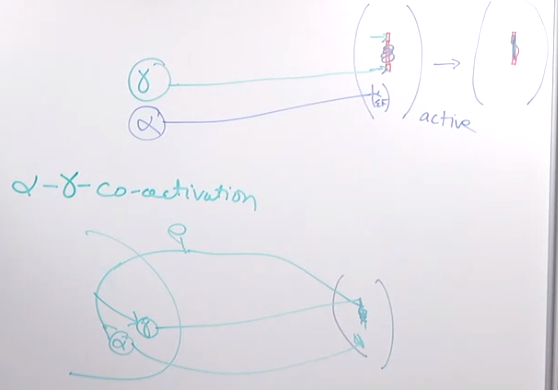 γ
α
active
α-γ-co-activation
γ
α